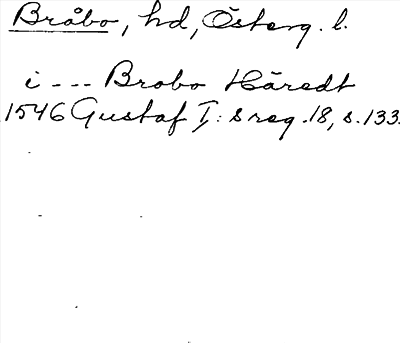 Bråbo, hd, Österg. l.
i --- Brobo Häredt
1546 Gustaf I: s reg. 18, s. 133.